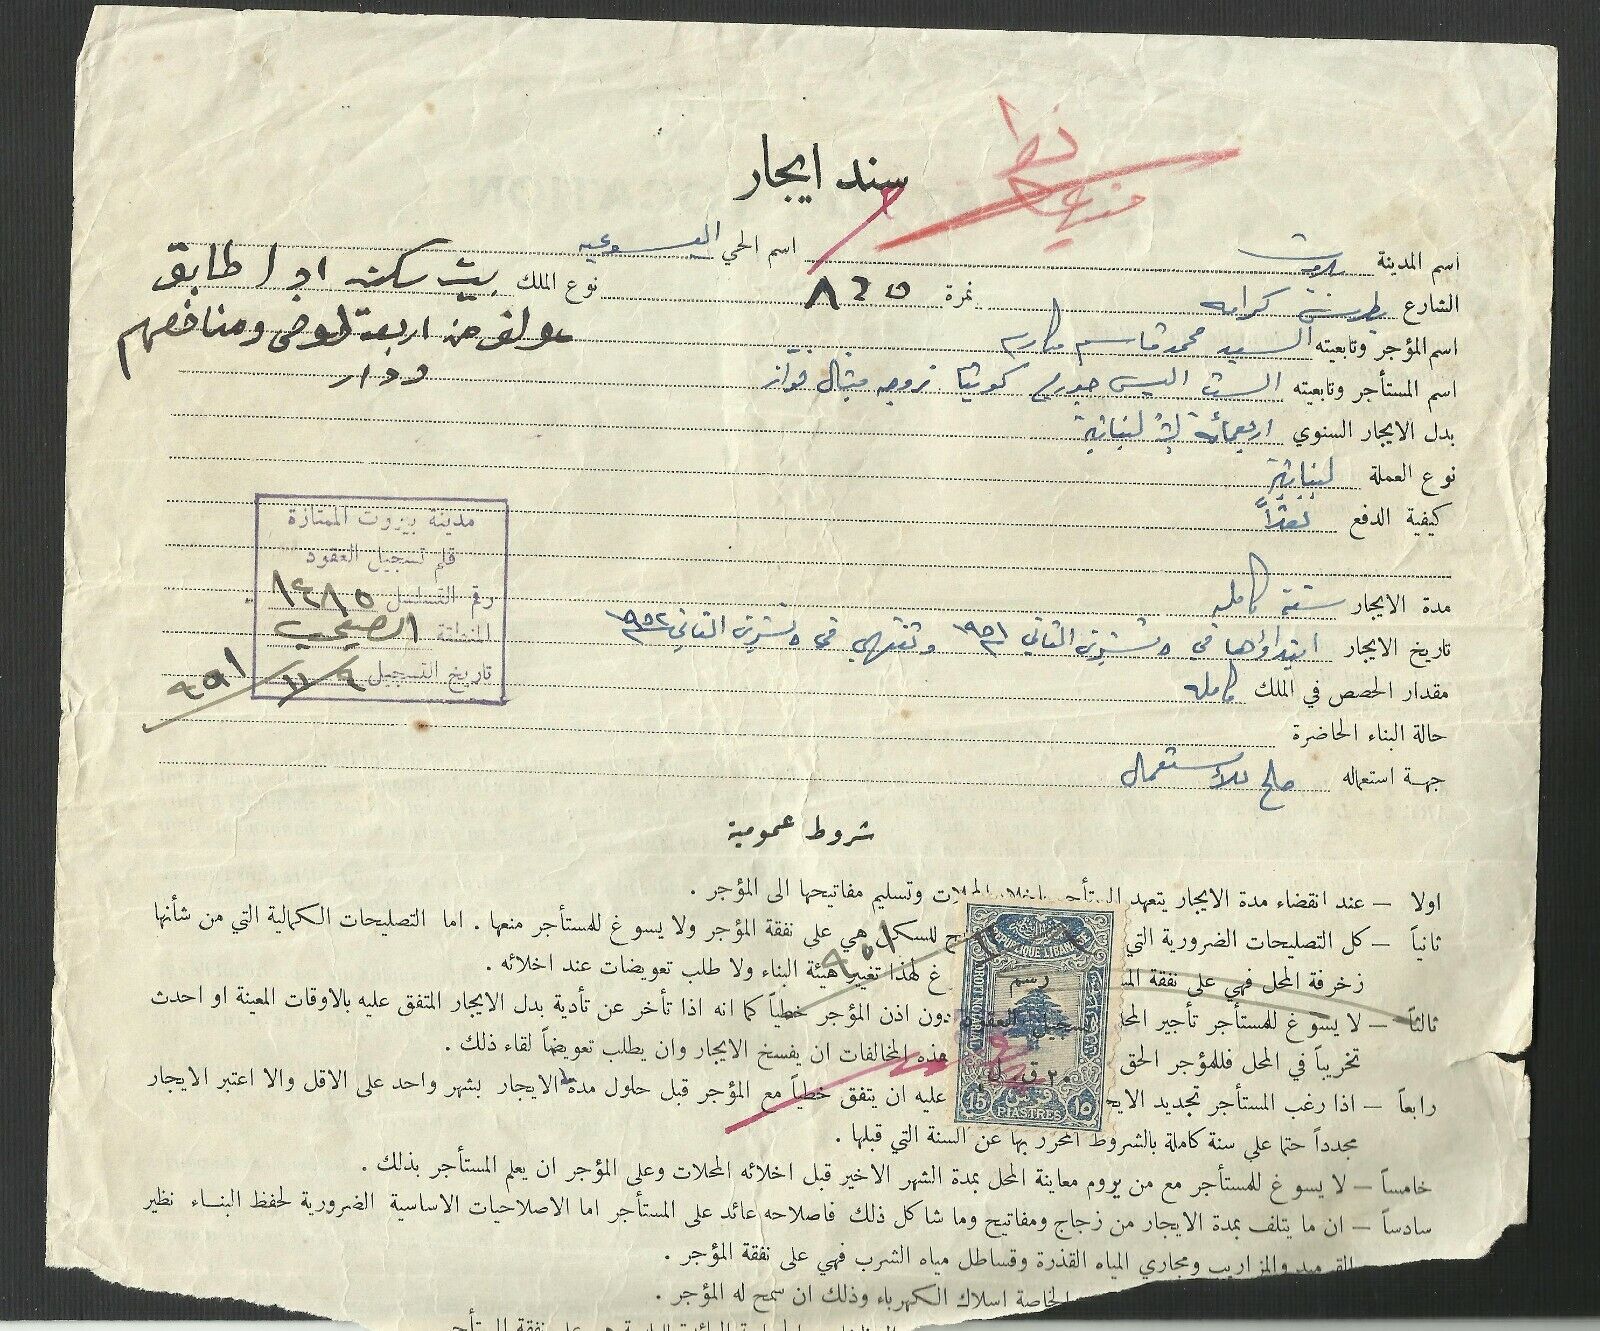 سند ايجار
اسم المدينة بيروت اسم الحي اليسوعيه
الشارع بطرس كرامه نمرة ٨٢٥ نوع الملك بيت سكن اول طابق
مؤلف من اربعة اوض ومنافعهم
ودار
اسم المؤجر وتابعيته السيد محمد قاسم مكارم
اسم المستأجر وتابعيته الست اليس جورج زوجه ميشال فواز
بدل الايجار السنوي اربعمائة ليرة لبنانية
نوع العملة لبنانية
كيفية الدفع نقداً
مدة الايجار سنة كامله
تاريخ الايجار ابتداؤها في ٥ تشرين الثاني ١٩٥١ وتنتهي في ٥ تشرين الثاني ١٩٥٢
مقدار الحصص في الملك كامله
حالة البناء الحاضرة
جهة استعماله صالح للاستعمال
مدينة بيروت الممتازة
قلم تسجيل العقود
رقم التسلسل ١٤٨٥
المنطقة الصيفي
تاريخ التسجيل ٩/١١/٩٥١
شروط عمومية
اولا – عند انقضاء مدة الايجار يتعهد المستأجر المحلات وتسليم مفاتيحها الى المؤجر .
ثانياً – كل التصليحات الضرورية التي للسكن هي على نفقة المؤجر ولا يسوغ للمستأجر منعها . اما التصليحات الكمالية التي من شأنها
زخرفة المحل فهي على نفقة غ لهذا تغيير هيئة البناء ولا طلب تعويضات عند اخلائه .
ثالثاً – لا يسوغ للمستأجر تأجير المحل دون اذن المؤجر خطياً كما انه اذا تأخر عن تأدية بدل الايجار المتفق عليه بالاوقات المعينة او احدث
تخريباً في المحل فللمؤجر الحق هذه المخالفات ان يفسخ الايجار وان يطلب تعويضاً لقاء ذلك .
رابعاً – اذا رغب المستأجر تجديد الايج عليه ان يتفق خطياً مع المؤجر قبل حلول مدة الايجار بشهر واحد على الاقل والا اعتبر الايجار
مجدداً حتما على سنة كاملة بالشروط المحرر بها عن السنة التي قبلها .
خامساً – لا يسوغ للمستأجر مع من يروم معاينة المحل بمدة الشهر الاخير قبل اخلائه المحلات وعلى المؤجر ان يعلم المستأجر بذلك .
سادساً – ان ما يتلف بمدة الايجار من زجاج ومفاتيح وما شاكل ذلك فاصلاحه عائد على المستأجر اما الاصلاحيات الاساسية الضرورية لحفظ البناء نظير
القرميد والمزاريب ومجاري المياه القذرة وقساطل مياه الشرب فهي على نفقة المؤجر .
الخاصة اسلاك الكهرباء وذلك ان سمح له المؤجر .
REPUBLIQUE LIBANAISE
رسم
تسجيل العقود
٢٠ ق . ل
15 PIASTRES ١٥
٩٥١